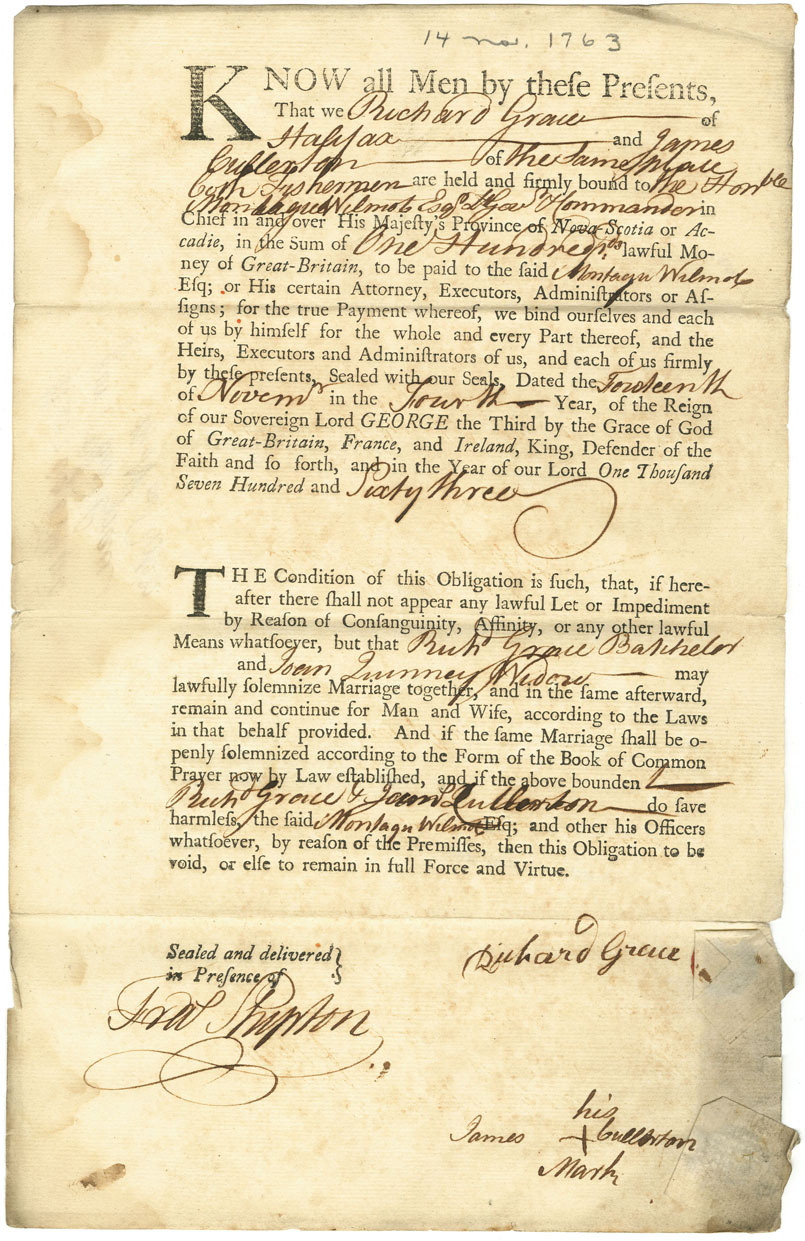 14 no. 1763
KNOW all Men by theſe Preſents,
That we Richard Grace of
Halifax and James
Cullerton of the Same place
Both Fishermen are held and firmly bound to the Honble
Montague Wilmot Esqr Lt Govr & Commander in
Chief in and over His Majeſty's Province of Nova-Scotia or Ac-
cadie, in the Sum of One Hundred lawful Mo-
ney of Great-Britain, to be paid to the said Montagu Wilmot
Eſq; or His certain Attorney, Executors, Adminiſtrators or Aſ-
ſigns; for the true Payment whereof, we bind ourſelves and each
of us by himſelf for the whole and every Part thereof, and the
Heirs, Executors and Adminiſtrators of us, and each of us firmly
by theſe preſents, Sealed with our Seals, Dated the Fourteenth
of Novemr in the Fourth Year, of the Reign
of our Sovereign Lord GEORGE the Third by the Grace of God
of Great-Britain, France, and Ireland, King, Defender of the
Faith and ſo forth, and in the Year of our Lord One Thouſand
Seven Hundred and Sixty three
THE Condition of this Obligation is ſuch, that, if here-
after there ſhall not appear any lawful Let or Impediment
by Reaſon of Conſanguinity, Affinity, or any other lawful
Means whatſoever, but that Richd Grace Batchelor
and Joan Quinney Widow may
lawfully ſolemnize Marriage together, and in the ſame afterward,
remain and continue for Man and Wife, according to the Laws
in that behalf provided. And if the ſame Marriage ſhall be o-
penly ſolemnized according to the Form of the Book of Common
Prayer now by Law eſtabliſhed, and if the above bounden
Richd Grace & James Cullerton do ſave
harmleſs, the ſaid Montagu Wilmot Eſq; and other his Officers
whatſoever, by reaſon of the Premiſſes, then this Obligation to be
void, or elſe to remain in full Force and Virtue.
Sealed and delivered
in Preſence of
Richard Grace
Shipton
his
James + Cullerton
Mark